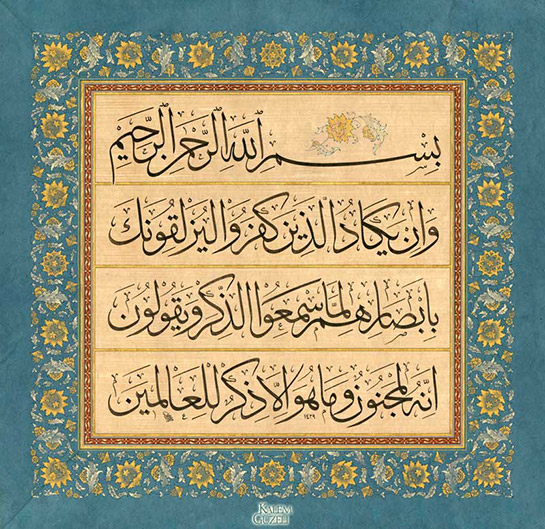 بسم الله الرحمن الرحيم
وان يكاد الذين كفروا ليزلقونك
بابصارهم لما سمعوا الذكر ويقولون
انه لمجنون وما هو الا ذكر للعالمين
١٤٢٩
KALEM GÜZELİ